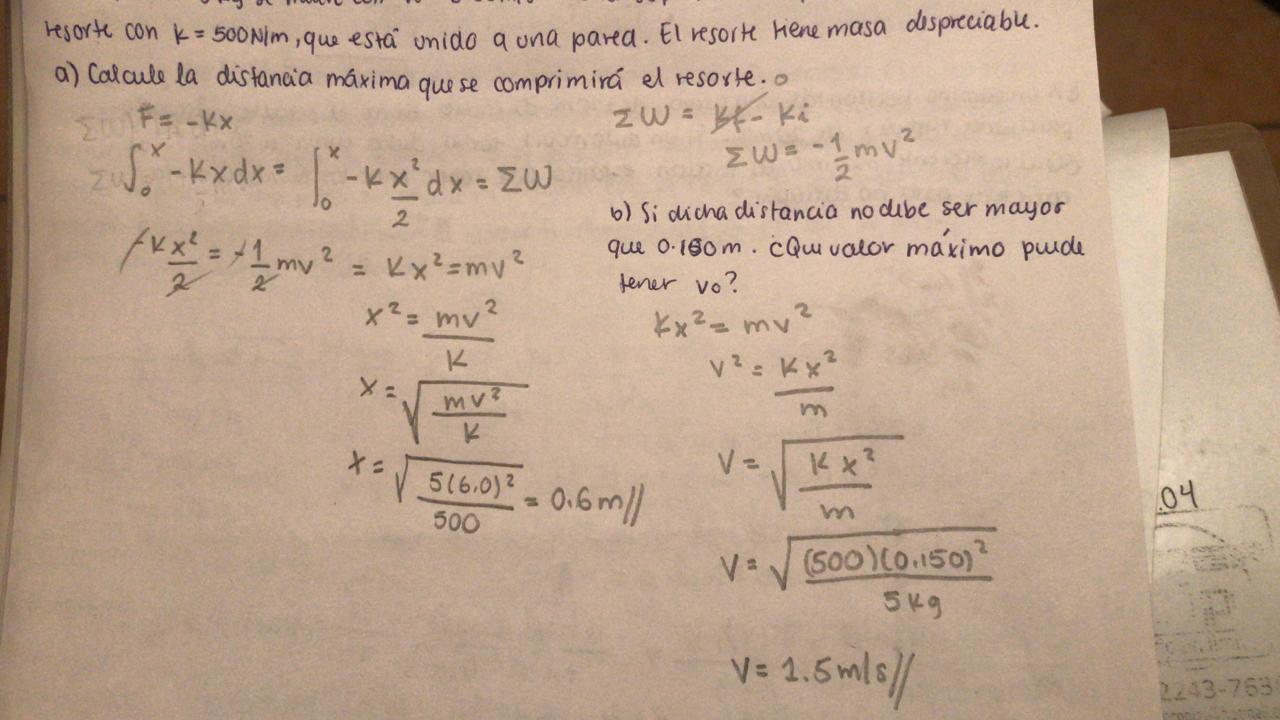 resorte con k = 500N/m, que está unido a una pared. El resorte tiene masa despreciable.
a) Calcule la distancia máxima que se comprimirá el resorte.
F = -Kx
∫₀ˣ -Kx dx = ∫₀ˣ -K x²/2 dx = ΣW
-Kx²/2 = -1/2 mv² = Kx² = mv²
x² = mv²/K
x = √(mv²/K)
x = √(5(6.0)²/500) = 0.6m//
0
ΣW = Kf - Ki
ΣW = -1/2 mv²
b) Si dicha distancia no debe ser mayor
que 0.150m. ¿Que valor máximo puede
tener vo?
Kx² = mv²
v² = Kx²/m
V = √(Kx²/m)
V = √((500)(0.150)²/5Kg)
V = 1.5m/s//
.04
2243-763